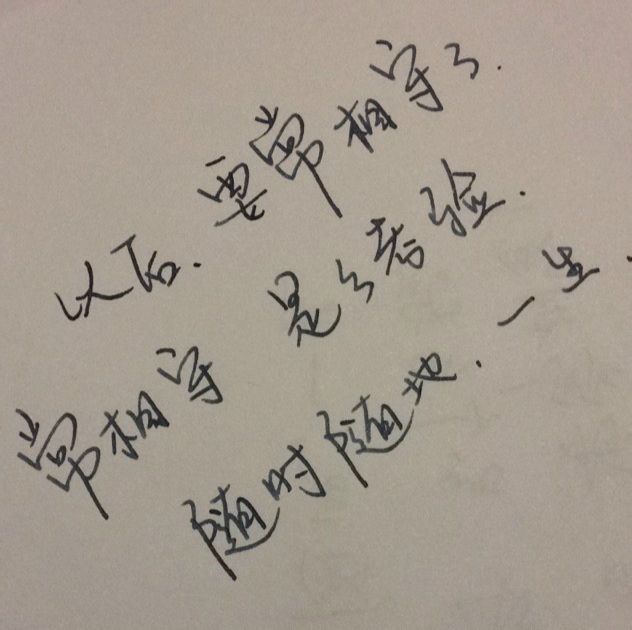 以后.要常相守了.
常相守 是个考验.
随时随地.一生.